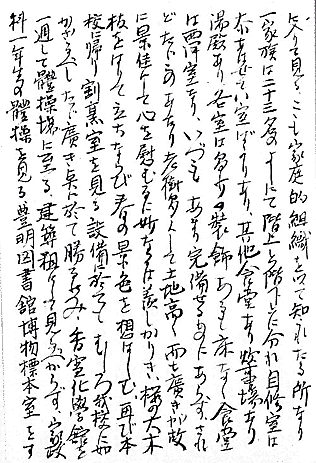 に入て見る、こも家庭的組織を以て知れたる所なり
一家族は二十三名の十にて階上と階下とに分れ自修室は
室ばかりあり、其他食堂あり炊事場あり
湯殿あり、各室は多少の裝飾あるも床なく食堂
は西洋室なり、いづれもあまり完備せるものにあらず、され
どたゞこのあたり老樹多くして土地高く而も廣きが故
に景佳くして心を慰むるに妙なるは羨しかりき、桜の大木
枝をはりて立ちならび春の景色を想はしむ、再び本
校に帰り割烹室を見る設備に於てはむしろ我校に如
かざるべしたゞ廣き点に於て勝るのみ、香雪化学館を
一週して體操場に至る、建築粗にして見るべからず、家政
科一年生の體操を見る豊明図書館博物標本室をす